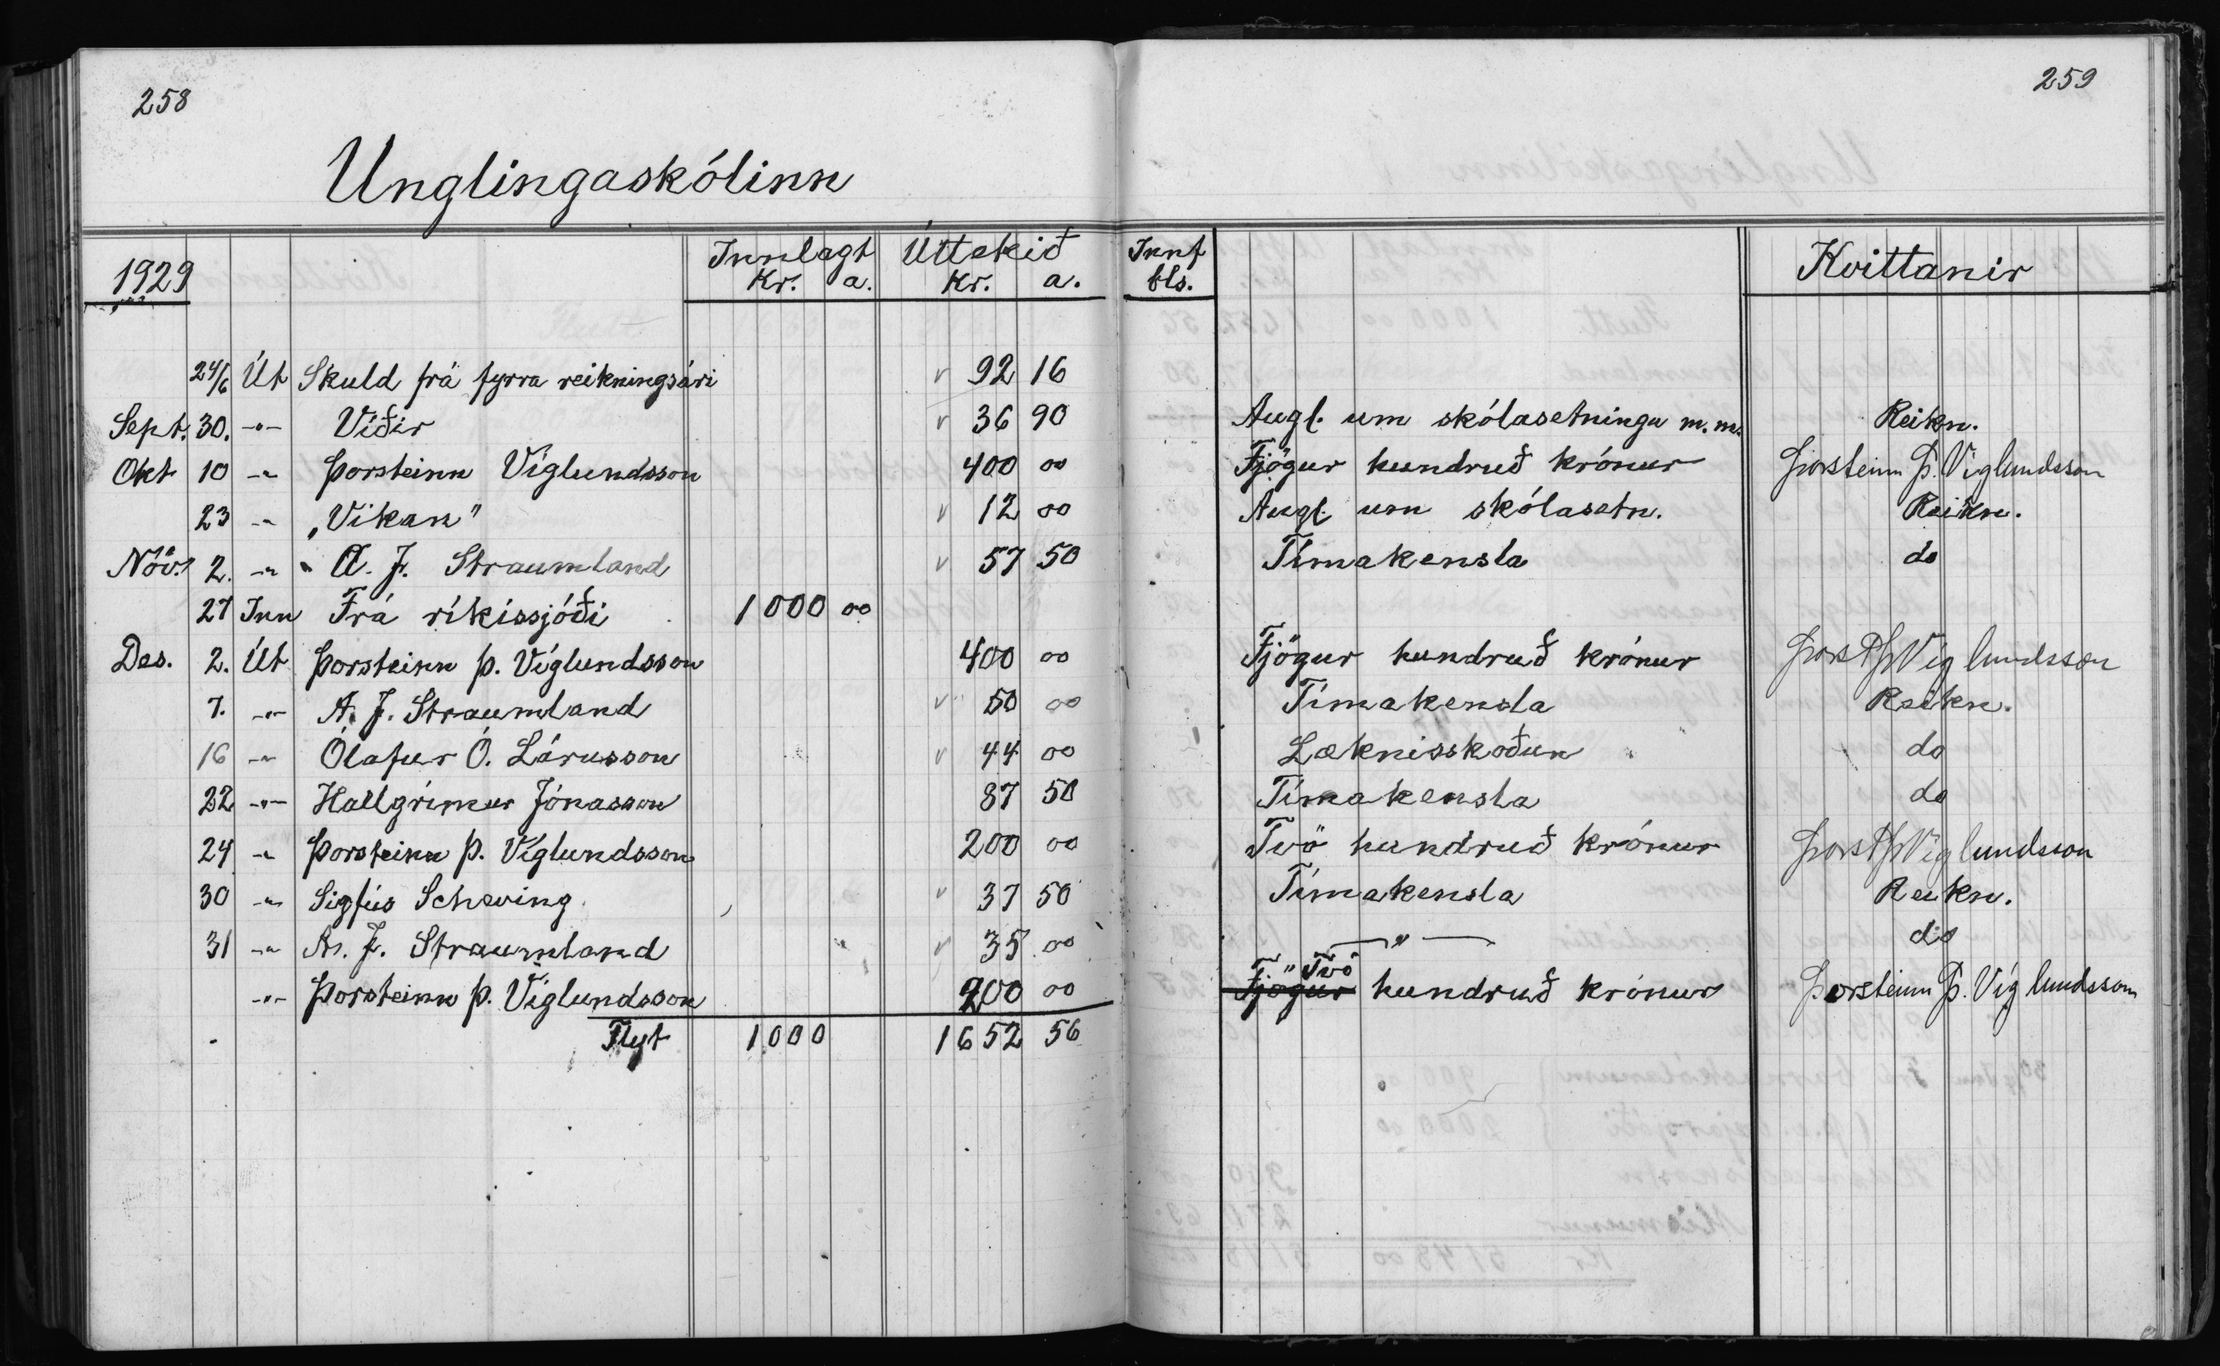 258
259
Unglingaskólinn
1929 Innlagt Kr. a. Úttekið Kr. a. Innf bls. Kvittanir
24/6 Út Skuld frá fyrra reikningsári 92 16
Sept. 30. -"- Víðir 36 90 Augl. um skólasetningu m.m. Reikn.
Okt 10 -"- Þorsteinn Víglundsson 400 00 Fjögur hundruð krónur Þorsteinn Þ. Víglundsson
23 -"- „Vikan" 12 00 Augl. um skólasetn. Reikn.
Nóv. 2. -"- A. J. Straumland 57 50 Tímakensla do
27 Inn Frá ríkissjóði 1000 00
Des. 2. Út Þorsteinn Þ. Víglundsson 400 00 Fjögur hundruð krónur Þorst Þ Víglundsson
7. -"- A. J. Straumland 50 00 Tímakensla Reikn.
16 -"- Ólafur Ó. Lárusson 44 00 Læknisskoðun do
22 -"- Hallgrímur Jónasson 87 50 Tímakensla do
24 -"- Þorsteinn Þ. Víglundsson 200 00 Tvö hundruð krónur Þorst Þ Víglundsson
30 -"- Sigfús Scheving 37 50 Tímakensla Reikn.
31 -"- A. J. Straumland 35 00 -"- do
-"- Þorsteinn Þ. Víglundsson 200 00 Fjögur Tvö hundruð krónur Þorsteinn Þ. Víglundsson
Flyt 1000 1652 56